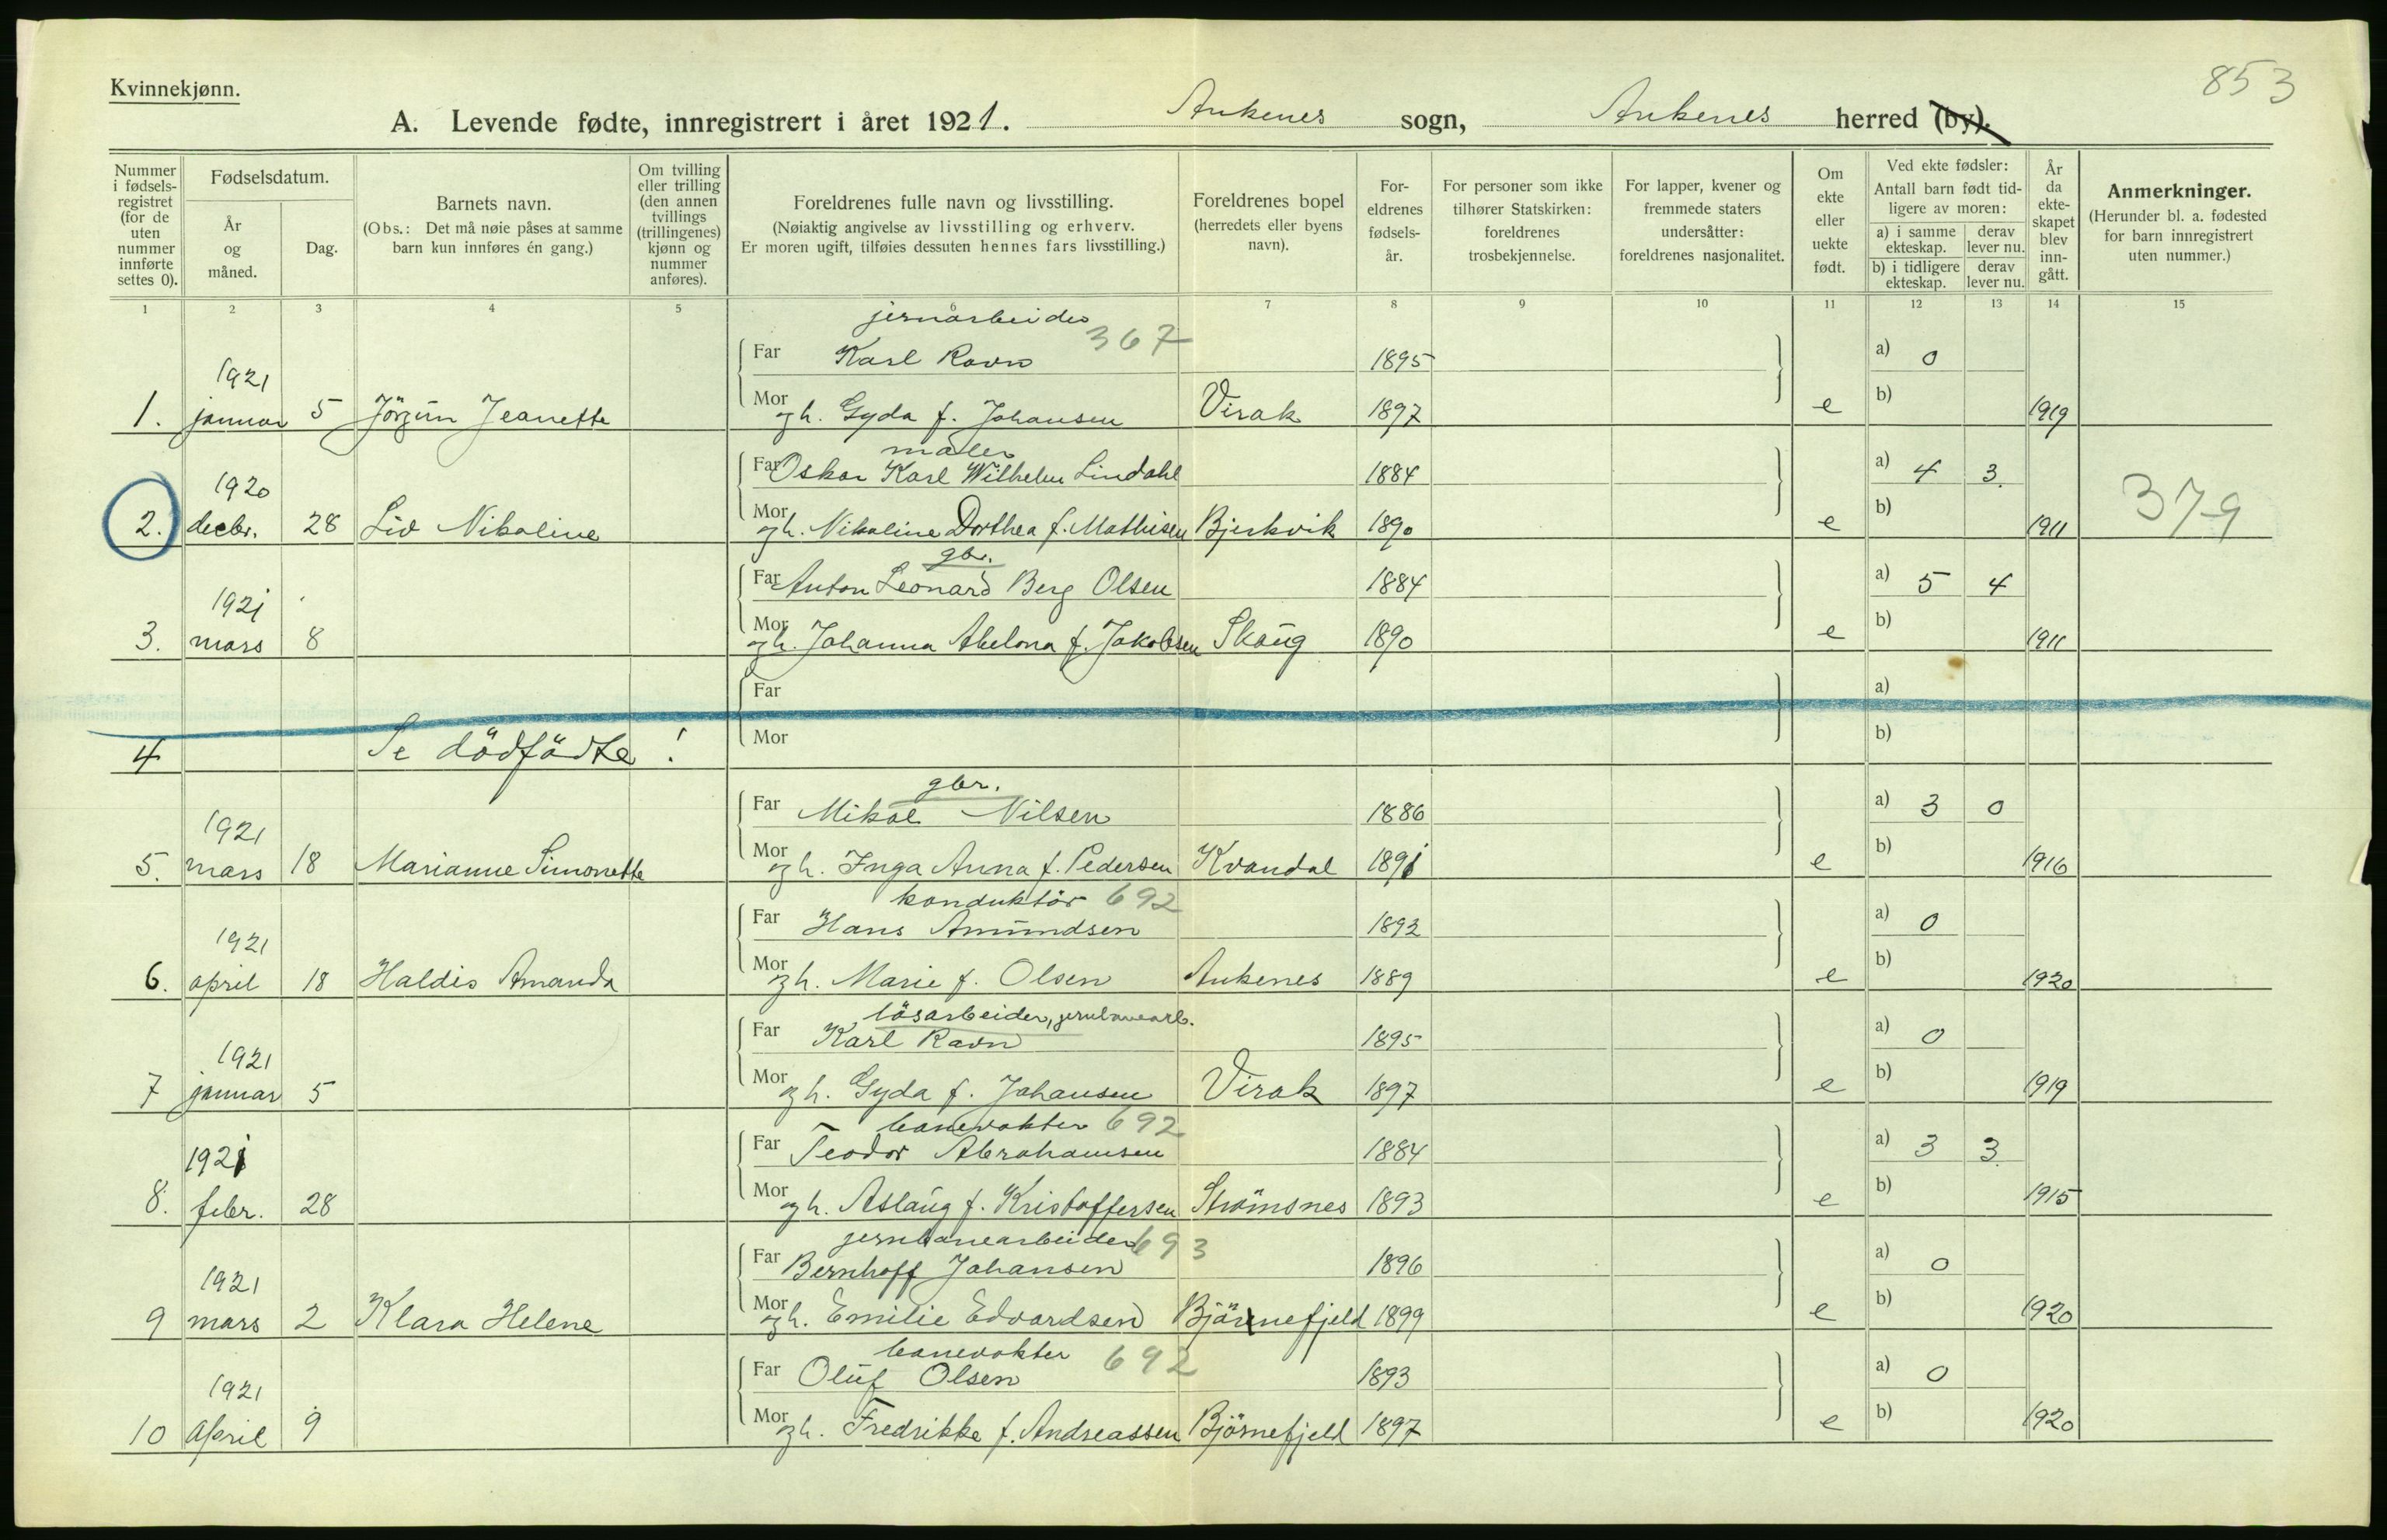 853
Kvinnekjønn.
A. Levende fødte, innregistrert i året 1921. Ankenes sogn, Ankenes herred (by).
Nummer i fødselsregistret (for de uten nummer innførte settes 0).
Fødselsdatum.
År og måned.
Dag.
Barnets navn.
(Obs.: Det må nøie påses at samme barn kun innføres én gang.)
Om tvilling eller trilling (den annen tvillings (trillingenes) kjønn og nummer anføres).
Foreldrenes fulle navn og livsstilling.
(Nøiaktig angivelse av livsstilling og erhverv.
Er moren ugift, tilføies dessuten hennes fars livsstilling.)
Foreldrenes bopel
(herredets eller byens navn).
Foreldrenes fødselsår.
For personer som ikke tilhører Statskirken: foreldrenes trosbekjennelse.
For lapper, kvener og fremmede staters undersåtter: foreldrenes nasjonalitet.
Om ekte eller uekte født.
Ved ekte fødsler:
Antall barn født tidligere av moren:
a) i samme ekteskap. derav lever nu.
b) i tidligere ekteskap. derav lever nu.
År da ekteskapet blev inngått.
Anmerkninger.
(Herunder bl. a. fødested for barn innregistrert uten nummer.)
1 2 3 4 5 6 7 8 9 10 11 12 13 14 15
jernarbeider 367
1921 Far Karl Ravn 1895 a) 0
1. januar 5 Jörgün Jeanette Mor gh. Gyda f. Johansen Virak 1897 e b) 1919
maler
1920 Far Oskar Karl Wilhelm Lindahl 1884 a) 4 3.
2. decbr. 28 Liv Nikoline Mor gh. Nikoline Dorthea f. Mathisen Bjerkvik 1890 e b) 1911 379
gbr.
1921 Far Anton Leonard Berg Olsen 1884 a) 5 4
3. mars 8 Mor gh. Johanna Abelona f. Jakobsen Skoug 1890 e b) 1911
Far a)
4 Se dödfödte! Mor b)
gbr.
1921 Far Mikal Nilsen 1886 a) 3 0
5. mars 18 Marianne Simonette Mor gh. Inga Anna f. Pedersen Kvandal 1891 e b) 1916
konduktör 692
1921 Far Hans Amundsen 1892 a) 0
6. april 18 Haldis Amanda Mor gh. Marie f. Olsen Ankenes 1889 e b) 1920
lösarbeider, jernbanearb.
1921 Far Karl Ravn 1895 a) 0
7 januar 5 Mor gh. Gyda f. Johansen Virak 1897 e b) 1919
banevokter 692
1921 Far Teodor Abrahamsen 1884 a) 3 3
8. febr. 28 Mor gh. Aslaug f. Kristoffersen Strömsnes 1893 e b) 1915
jernbanearbeider 693
1921 Far Bernhoff Johansen 1896 a) 0
9 mars 2 Klara Helene Mor gh. Emilie Edvardsen Björnefjeld 1899 e b) 1920
banevokter 692
1921 Far Oluf Olsen 1893 a) 0
10 April 9 Mor gh. Fredrikke f. Andreassen Björnefjeld 1897 e b) 1920